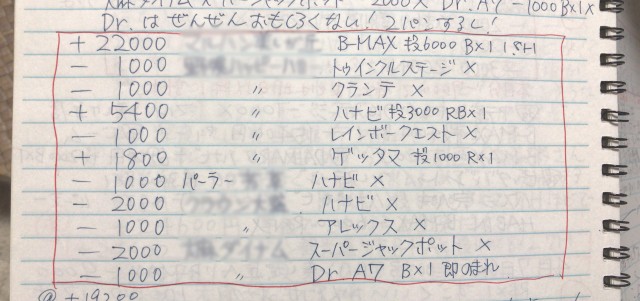 スーパージャックポット -2000× Dr. A7 -1000 B×1×
Dr.はぜんぜんおもしろくない!2パンするし!
+ 22000 B-MAX 投6000 B×1 1.8H
- 1000 トゥインクルステージ ×
- 1000 〃 クランテ ×
+ 5400 〃 ハナビ 投3000 RB×1
- 1000 〃 レインボークエスト ×
+ 1800 〃 ゲッタマ 投1000 R×1
- 1000 パーラー ハナビ ×
- 2000 ハナビ ×
- 1000 アレックス ×
- 2000 スーパージャックポット ×
- 1000 〃 Dr A7 B×1 即のまれ
@ +19200